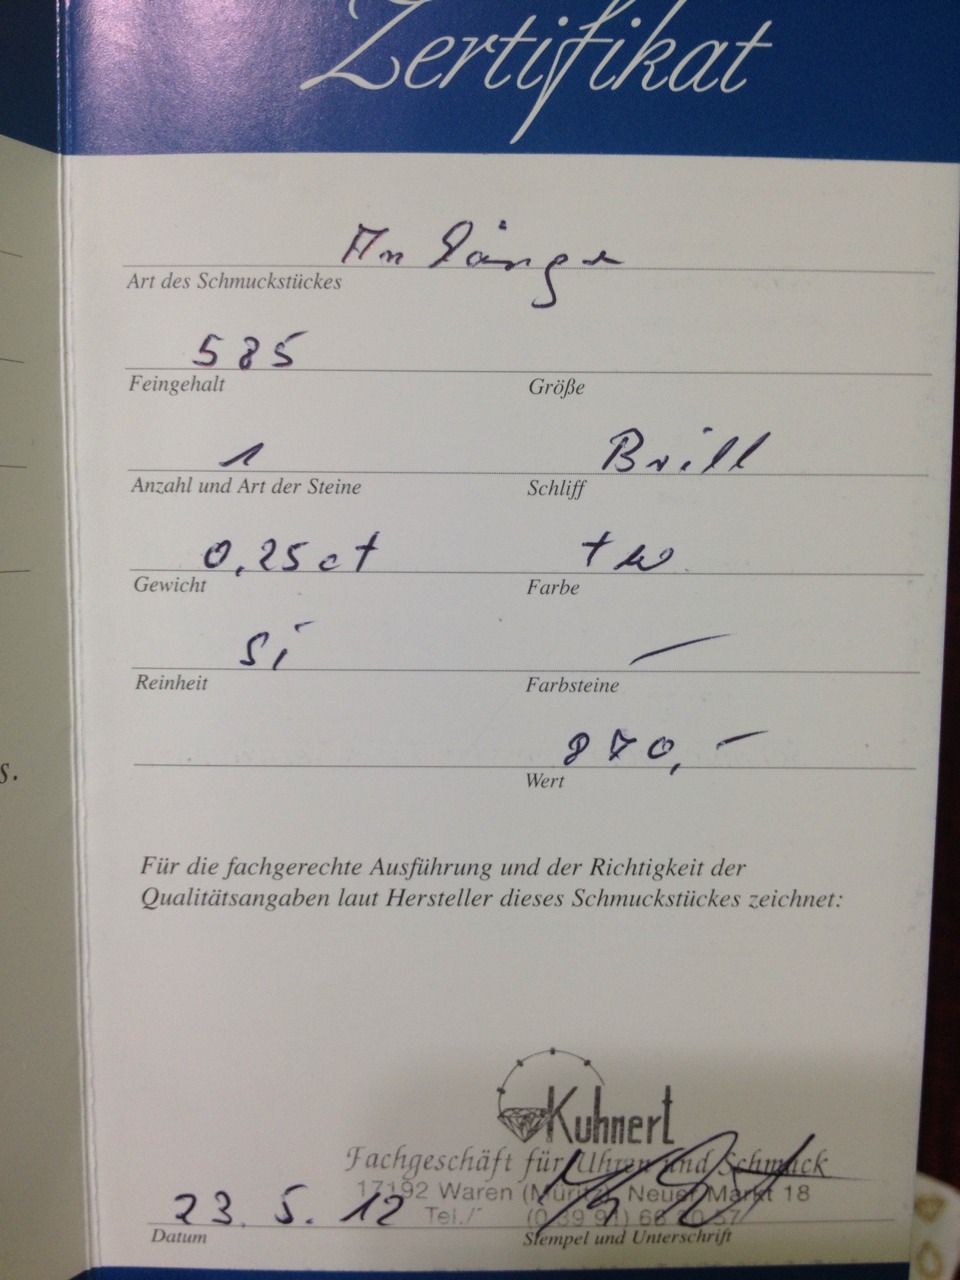 Zertifikat
An länger
Art des Schmuckstückes
585
Feingehalt Größe
1 Brill
Anzahl und Art der Steine Schliff
0,25ct tw
Gewicht Farbe
Si —
Reinheit Farbsteine
870,-
Wert
s.
Für die fachgerechte Ausführung und der Richtigkeit der
Qualitätsangaben laut Hersteller dieses Schmuckstückes zeichnet:
Kuhnert
Fachgeschäft für Uhren und Schmuck
17192 Waren (Müritz), Neuer Markt 18
23.5.12 Tel./ (0 39 91) 66
Datum Stempel und Unterschrift